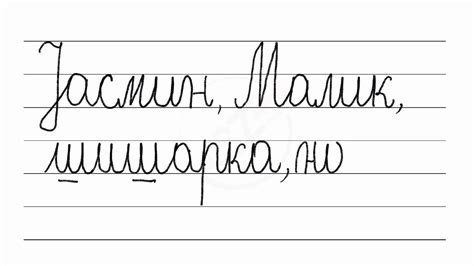 Јасмин, Малик,
шишарка, но